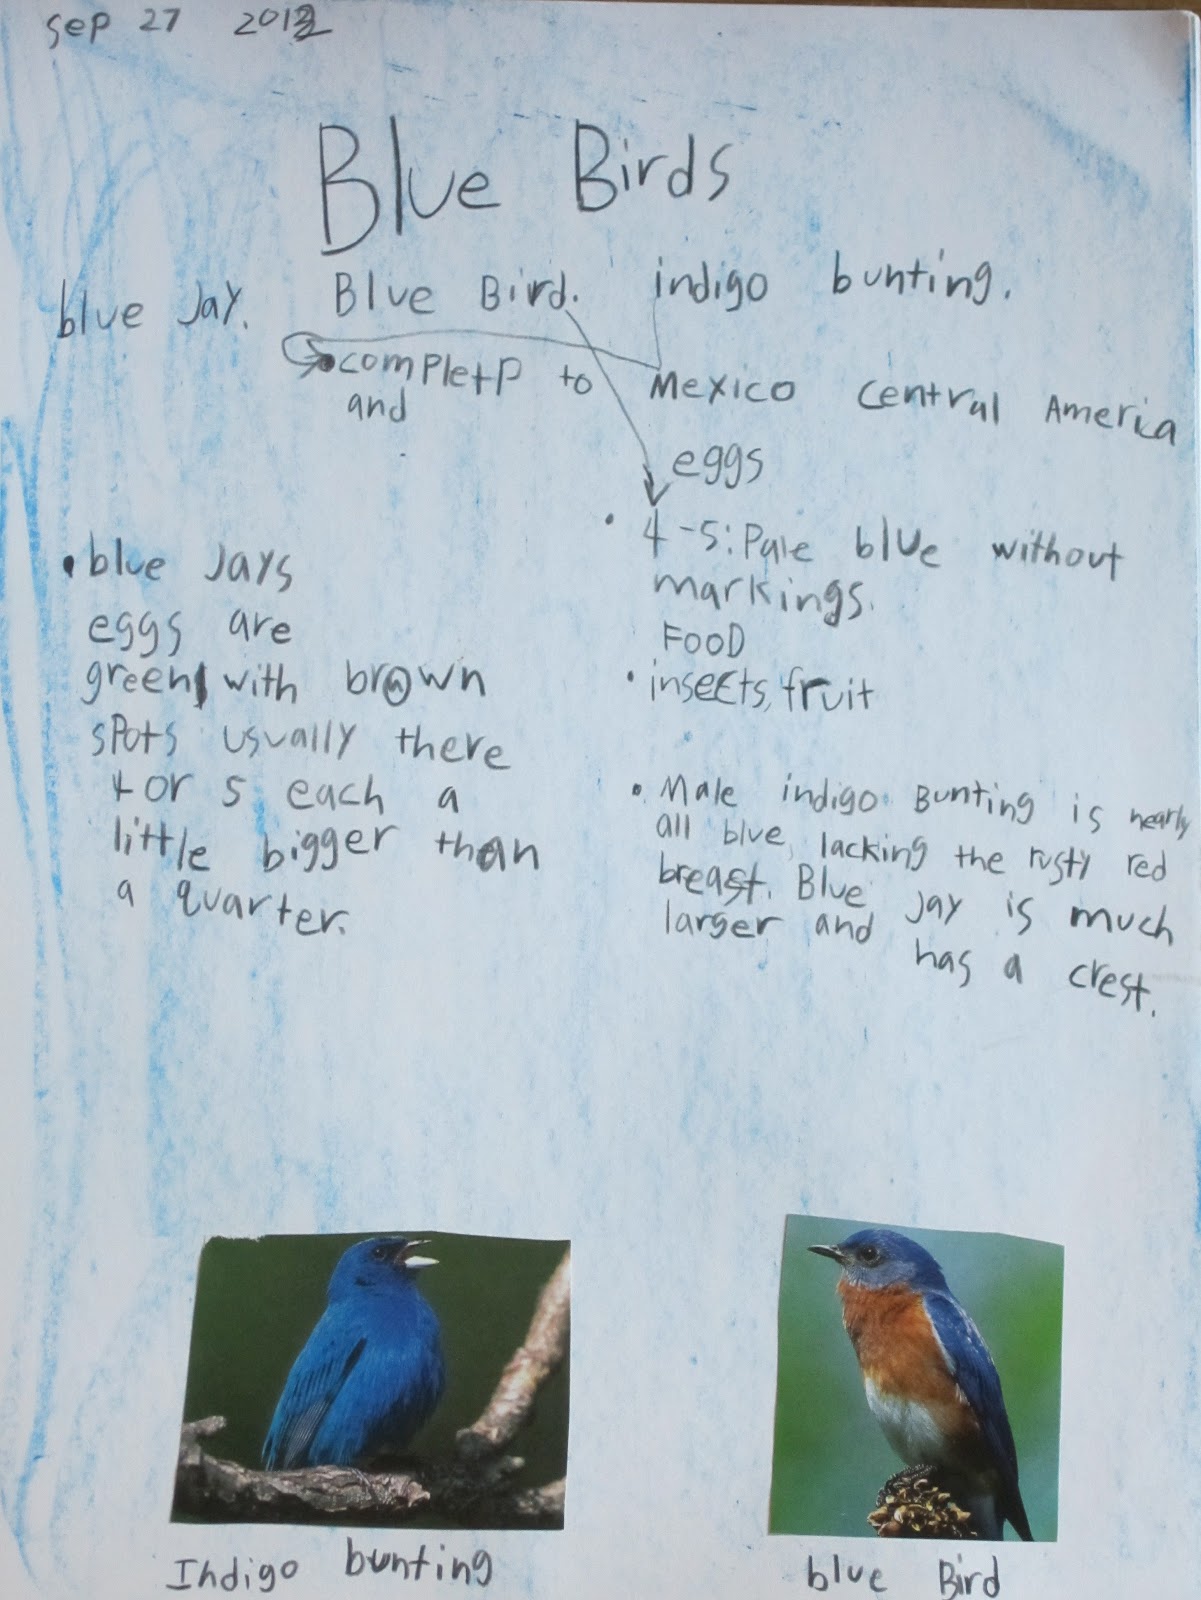 sep 27 2012
Blue Birds
blue Jay. Blue Bird. indigo bunting.
completp to Mexico Central America
and
eggs
• 4-5: Pale blue without
markings.
FOOD
• insects, fruit
• blue Jays
eggs are
green with brown
spots usually there
4 or 5 each a
little bigger than
a quarter.
• Male indigo Bunting is nearly
all blue, lacking the rusty red
breast. Blue Jay is much
larger and has a crest.
Indigo bunting
blue Bird